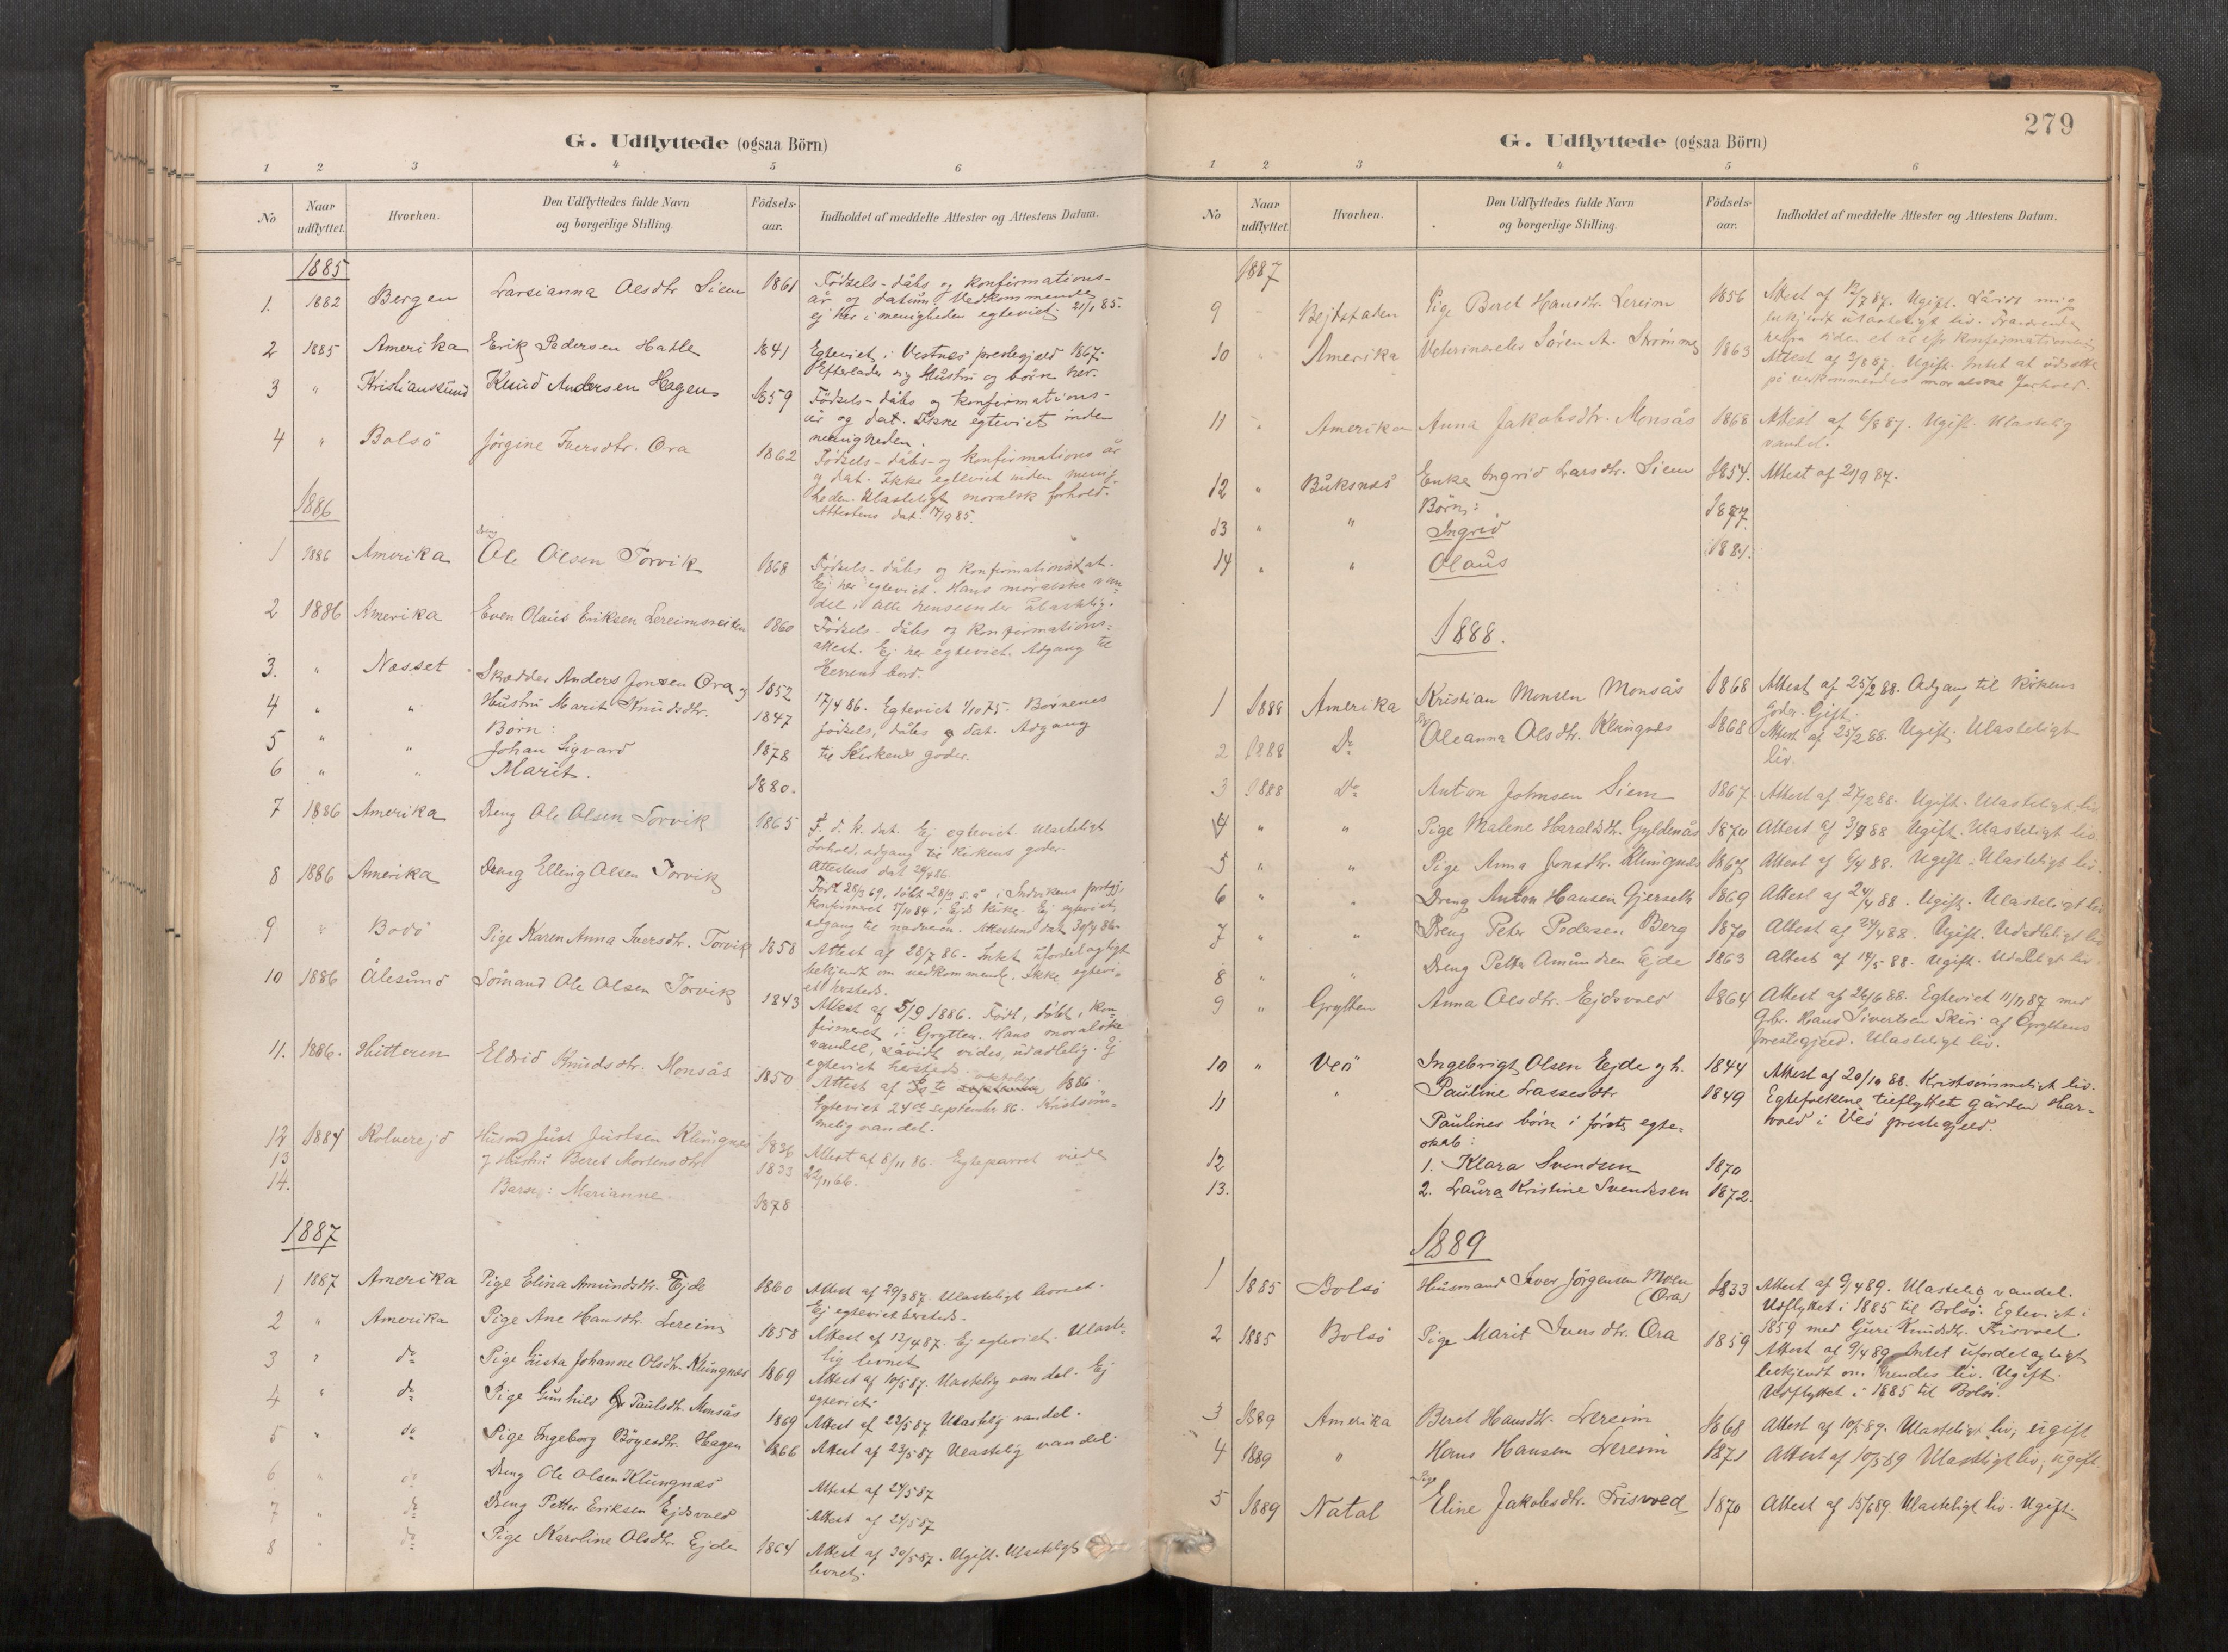 G. Udflyttede (ogsaa Börn)
1 2 3 4 5 6
No
Naar udflyttet.
Hvorhen.
Den Udflyttedes fulde Navn
og borgerlige Stilling.
Födsels-
aar.
Indholdet af meddelte Attester og Attestens Datum.
1885
1. 1882 Bergen Larsianna Olsdtr Siem 1861 Fødsels- dåbs og konfirmations-
år og datum. Vedkommende
ej her i menigheden egteviet. 21/1 85.
2 1885 Amerika Erik Pedersen Hatle 1841 Egteviet i Vestnæs prestegjeld 1867.
Efterlader sig Hustru og børn her.
3 " Kristiansund Knud Andersen Hagen 1859 Fødsels- dåbs og konfirmations-
år og dat. Ikke egteviet inden
menigheden.
4 " Bolsö Jörgine Iversdtr. Ora 1862 Fødsels- dåbs- og konfirmations år
og dat. Ikke egteviet inden menig-
heden. Ulasteligt moralsk forhold.
Attestens dat. 14/9 85.
1886
1 1886 Amerika Ole Olsen Torvik 1868 Fødsels- dåbs og konfirmationsdat.
Ej her egteviet. Hans moralske van-
del i alle henseender ulastelig.
2 1886 Amerika Even Olaus Eriksen Lereimsreiten 1860 Fødsels- dåbs og konfirmations-
attest. Ej her egteviet. Adgang til
Herrens bord.
3. " Næsset Skrædder Anders Jonsen Ora og 1852 17/4 86. Egteviet 1/10 75. Børnenes
4 " " Hustru Marit Knudsdtr. 1847 fødsels, dåbs og dat. Adgang
Børn: til Kirkens goder.
5 " " Johan Sigvard 1878
6 " " Marit. 1880.
7 1886 Amerika Dreng Ole Olsen Torvik 1865 F. d. k. dat. Ej egteviet. Ulasteligt
forhold, adgang til kirkens goder.
Attestens dat
8 1886 Amerika Dreng Elling Olsen Torvik Født 28/3 69, døbt 28/3 s. å i Indvikens prstgj,
konfirmeret 5/10 84 i Ejds Kirke. Ej egteviet,
adgang til nadveren. Attestens dat 30/4 86.
9 " Bodö Pige Karen Anna Iversdtr. Torvik 1858 Attest af 28/7 86. Intet ufordelagtigt
bekjendt om vedkommende. Ikke egtevi-
et hersteds.
10 1886 Ålesund Sömand Ole Olsen Torvik 1843 Attest af 5/9 1886. Født, døbt, kon-
firmeret i Grytten. Hans moralske
vandel, såvidt vides, udadlelig. Ej
egteviet hersteds.
11. 1886. Hitteren Eldrid Knudsdtr. Monsås 1850 Attest af oktober 1886.
Egteviet 24de september 86. Kristsöm-
melig vandel.
12 1884 Kolvereid Husmd Just Justsen Klungnæs 1836 Attest af 8/11 86. Egteparret viede
13 og Hustru Beret Mortensdtr 1833 22/11 66.
14. Barn: Marianne. 1878
1887
1 1887 Amerika Pige Elina Amundsdtr. Ejde 1860 Attest af 29/3 87. Ulasteligt levnet.
Ej egteviet hersteds.
2 " Amerika Pige Ane Hansdtr. Lereim 1858 Attest af 12/4 87. Ej egteviet. Ulaste-
lig levnet
3 " do Pige Gusta Johanne Olsdtr. Klungnæs 1869 Attest af 10/5 87. Ulastelig vandel. Ej
egteviet.
4 " do Pige Gunhild Paulsdtr. Monsås 1869 Attest af 22/5 87 Ulastelig vandel.
5 " do Pige Ingeborg Böyesdtr. Hagen 1866 Attest af 23/5 87 Ulastelig vandel
6 " do Dreng Ole Olsen Klungnæs Attest af 24/5 87
7 " do Dreng Petter Eriksen Ejdsvold Attest af 24/5 87
8 " do Pige Karoline Olsdtr. Ejde 1864 Attest af 30/5 87. Ugift. Ulasteligt
levnet.
279
G. Udflyttede (ogsaa Börn)
1 2 3 4 5 6
No
Naar udflyttet.
Hvorhen.
Den Udflyttedes fulde Navn
og borgerlige Stilling.
Födsels-
aar.
Indholdet af meddelte Attester og Attestens Datum.
1887
9 - Bejtstaden Pige Beret Hansdtr. Lereim 1856 Attest af 12/7 87. Ugift. Såvidt mig
bekjendt ulasteligt liv. Fraværende
herfra siden et år efr konfirmationen
10 " Amerika Veterinærelev Søren A. Strømme 1863 Attest af 2/8 87. Ugift. Intet at udsætte
på vedkommendes moralske forhold.
11 - Amerika Anna Jakobsdtr. Monsås 1868 Attest af 6/8 87. Ugift. Ulastelig
vandel.
12 " Buksnæs Enke Ingrid Larsdtr. Siem 1854. Attest af 20/9 87.
Børn:
13 " " Ingrid 1877.
14 " " Olaus 1881.
1888.
1 1888 Amerika Kristian Monsen Monsås 1868 Attest af 25/2 88. Adgang til Kirkens
goder. Gift.
2 1888 Do Oleanna Olsdtr. Klungnæs 1868 Attest af 25/2 88. Ugift. Ulasteligt
liv.
3 1888 Do Anton Johnsen Siem 1867 Attest af 27/2 88. Ugift. Ulasteligt liv
4 " " Pige Malene Haraldsdtr. Gyldenås 1870 Attest af 3/4 88 Ugift. Ulasteligt liv.
5 " " Pige Anna Jonsdtr. Klungnæs 1867 Attest af 6/4 88. Ugift. Ulasteligt liv.
6 " " Dreng Anton Hansen Gjerseth 1869 Attest af 24/4 88. Ugift. Ulasteligt liv
7 " " Dreng Peter Pedersen Berg 1870 Attest af 24/4 88. Ugift. Udadleligt liv
8 " " Dreng Petter Amundsen Ejde 1863 Attest af 14/5 88. Ugift. Udadleligt liv.
9 " Grytten Anna Olsdtr. Ejdsvold 1864 Attest af 26/6 88. Egteviet 11/11 87 med
Gbr. Hans Sivertsen Skiri af Gryttens
prestegjeld. Ulasteligt liv.
10 " Veö Ingebrigt Olsen Ejde og h. 1844 Attest af 20/10 88. Kristsømmeligt liv.
11 " Pauline Lassesdtr 1849 Egtefolkene tilflyttet gården Har-
Paulines børn i første egte- vold i Veö prestegjeld.
skab:
12 1. Klara Svendsen 1870
13. 2. Laura Kristine Svendsen 1872.
1889
1 1885 Bolsö Husmand Iver Jørgensen Moen 1833 Attest af 9/4 89. Ulastelig vandel.
(Ora) Udflyttet i 1885 til Bolsö. Egteviet i
1859 med Guri Knudsdtr. Frisvoll
2 1885 Bolsö Pige Marit Iversdtr. Ora 1859 Attest af 9/4 89 Intet ufordelagtigt
bekjendt om hendes liv. Ugift.
Udflyttet i 1885 til Bolsö.
3 1889 Amerika Beret Hansdtr. Lereim 1868 Attest af 10/5 89. Ulasteligt liv, ugift
4 1889 " Hans Hansen Lereim 1871 Attest af 10/5 89 Ulasteligt liv, ugift.
Pige
5 1889 Natal Eline Jakobsdtr. Frisvold 1870 Attest af 15/6 89. Ulasteligt liv. Ugift.